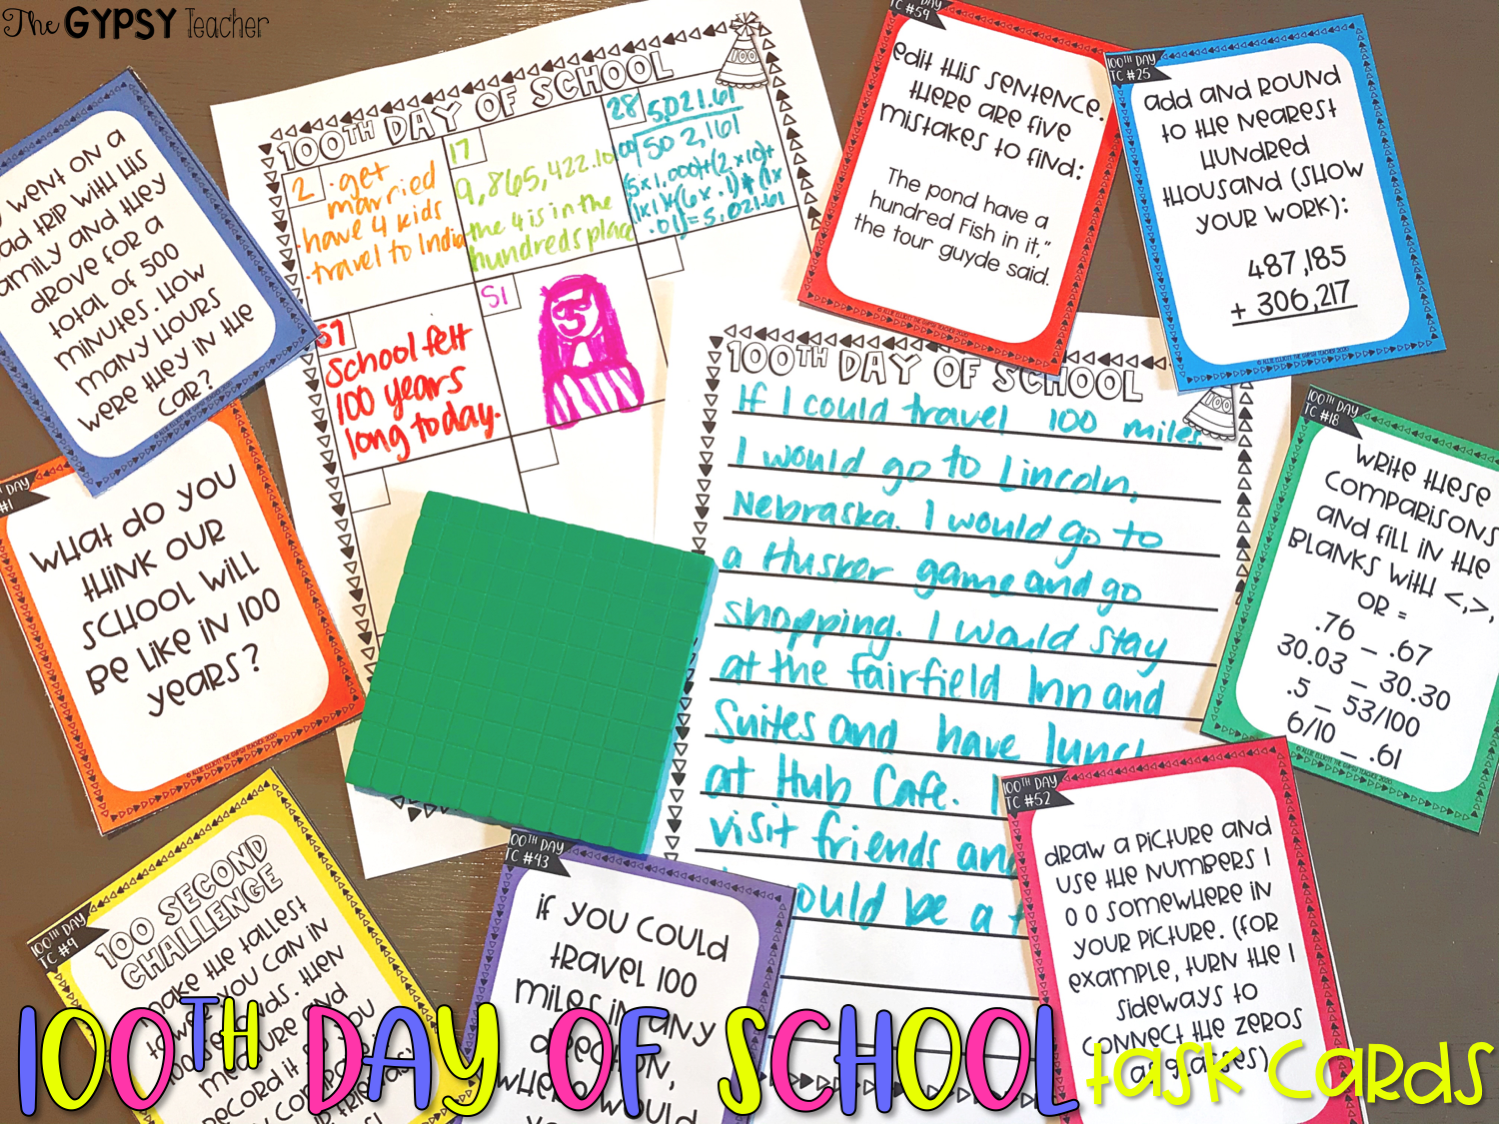 The GYPSY Teacher
went on a
trip with his
family and they
drove for a
total of 500
minutes. How
many hours
were they in the
car?
100TH DAY OF SCHOOL
100
2 · get
married
· have 4 kids
· travel to India
17
9,865,422.10
the 4 is in the
hundreds place
28
5,021.61
502,161
(5x1,000)+(2x10)+
(1x1)+(6x.1)+(1x
.01)=5,021.61
School felt
100 years
long today.
51
TC #59
edit this sentence.
there are five
mistakes to find:
The pond have a
hundred Fish in it,"
the tour guyde said.
100TH DAY
TC #25
add and round
to the nearest
hundred
thousand (show
your work):
487,185
+ 306,217
DAY
#1
what do you
think our
school will
be like in 100
years?
100TH DAY OF SCHOOL
100
If I could travel 100 miles
I would go to Lincoln,
Nebraska. I would go to
a Husker game and go
shopping. I would stay
at the Fairfield Inn and
Suites and have lunch
at Hub Cafe. I
visit friends and
ould be a
100TH DAY
TC #18
write these
comparisons
and fill in the
blanks with <,>,
or =
.76 _ .67
30.03 _ 30.30
.5 _ 53/100
6/10 _ .61
© ALLIE ELLIOTT THE GYPSY TEACHER 2020
100TH DAY
TC #9
100 SECOND
CHALLENGE
make the tallest
tower you can in
100 seconds. then
measure and
record it so you
can compare
friends!
100TH DAY
TC #43
if you could
travel 100
miles in any
direction,
where would
100TH DAY
TC #52
draw a picture and
use the numbers 1
0 0 somewhere in
your picture. (for
example, turn the 1
sideways to
connect the zeros
as glasses)
100TH DAY OF SCHOOL task cards